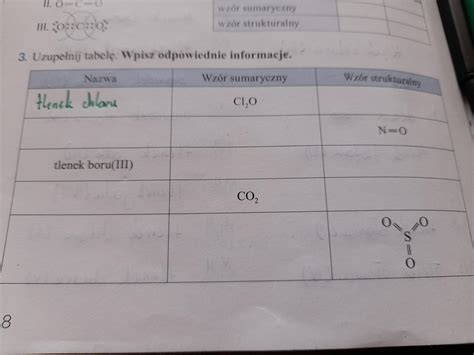 II. O—C—O
III. O::C::O
wzór sumaryczny
wzór strukturalny
3. Uzupełnij tabelę. Wpisz odpowiednie informacje.
Nazwa Wzór sumaryczny Wzór strukturalny
tlenek chloru Cl₂O
N=O
tlenek boru(III)
CO₂
O O
S
O
8